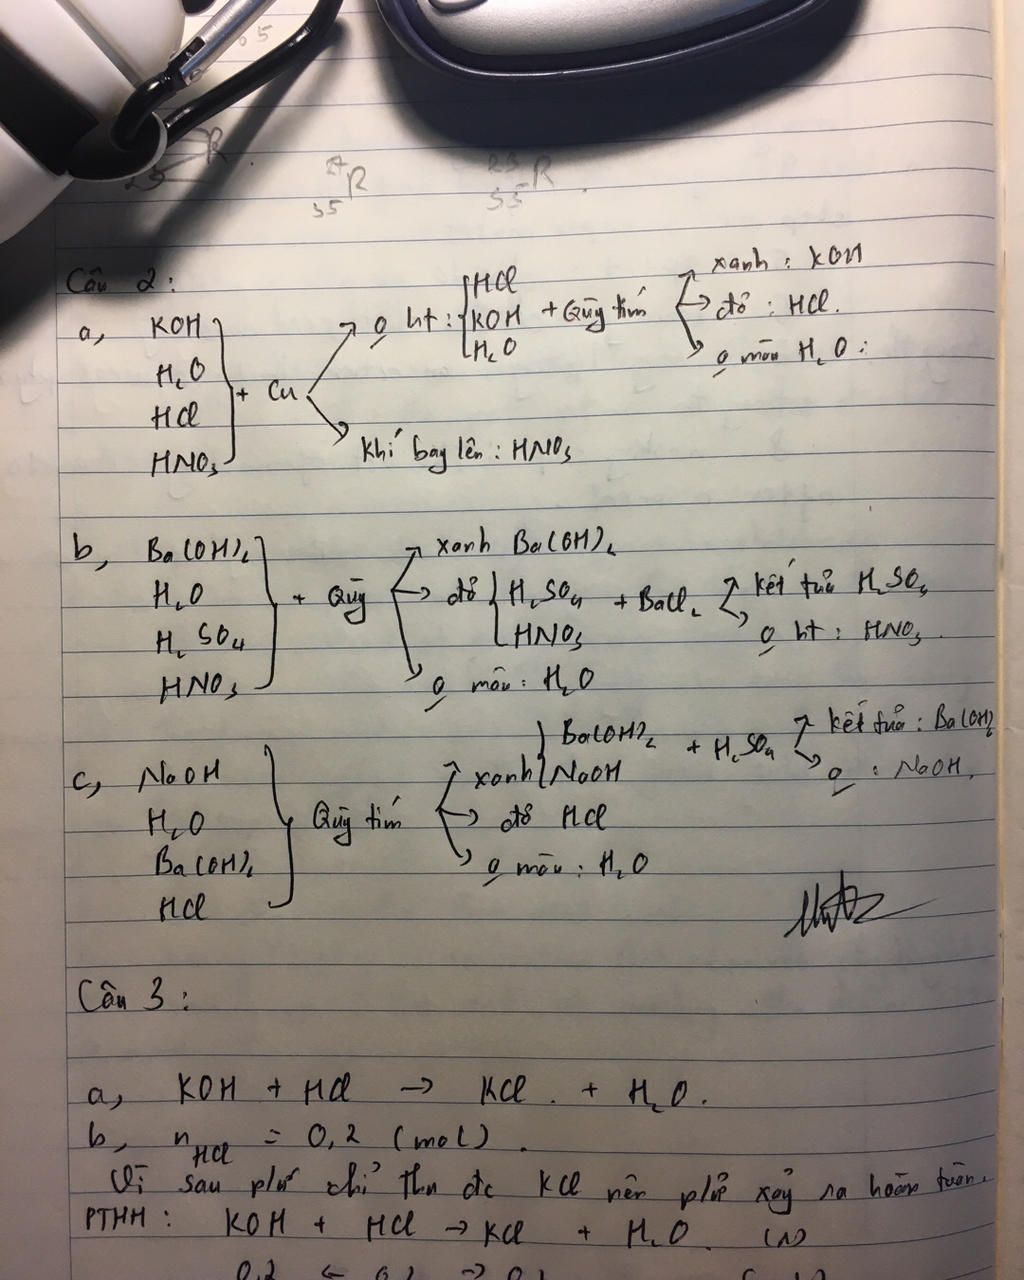 27
35 R
23
35 R
Câu 2:
a, KOH
H₂O
HCl
HNO₃
+ Cu
o ht: HCl
KOH
H₂O
+ Quỳ tím
xanh: KOH
đỏ: HCl.
o màu H₂O:
Khí bay lên: HNO₃
b, Ba(OH)₂
H₂O
H₂SO₄
HNO₃
+ Quỳ
xanh Ba(OH)₂
đỏ H₂SO₄
HNO₃
+ BaCl₂
kết tủa H₂SO₄
o ht: HNO₃.
o màu: H₂O
c, NaOH
H₂O
Ba(OH)₂
HCl
Quỳ tím
xanh Ba(OH)₂
NaOH
+ H₂SO₄
kết tủa: Ba(OH)₂
o : NaOH.
đỏ HCl
o màu: H₂O
Câu 3:
a, KOH + HCl → KCl. + H₂O.
b, nHCl = 0,2 (mol).
Vì sau pứ chỉ thu đc KCl nên pứ xảy ra hoàn toàn.
PTHH: KOH + HCl → KCl + H₂O. (1)
0,2 ←